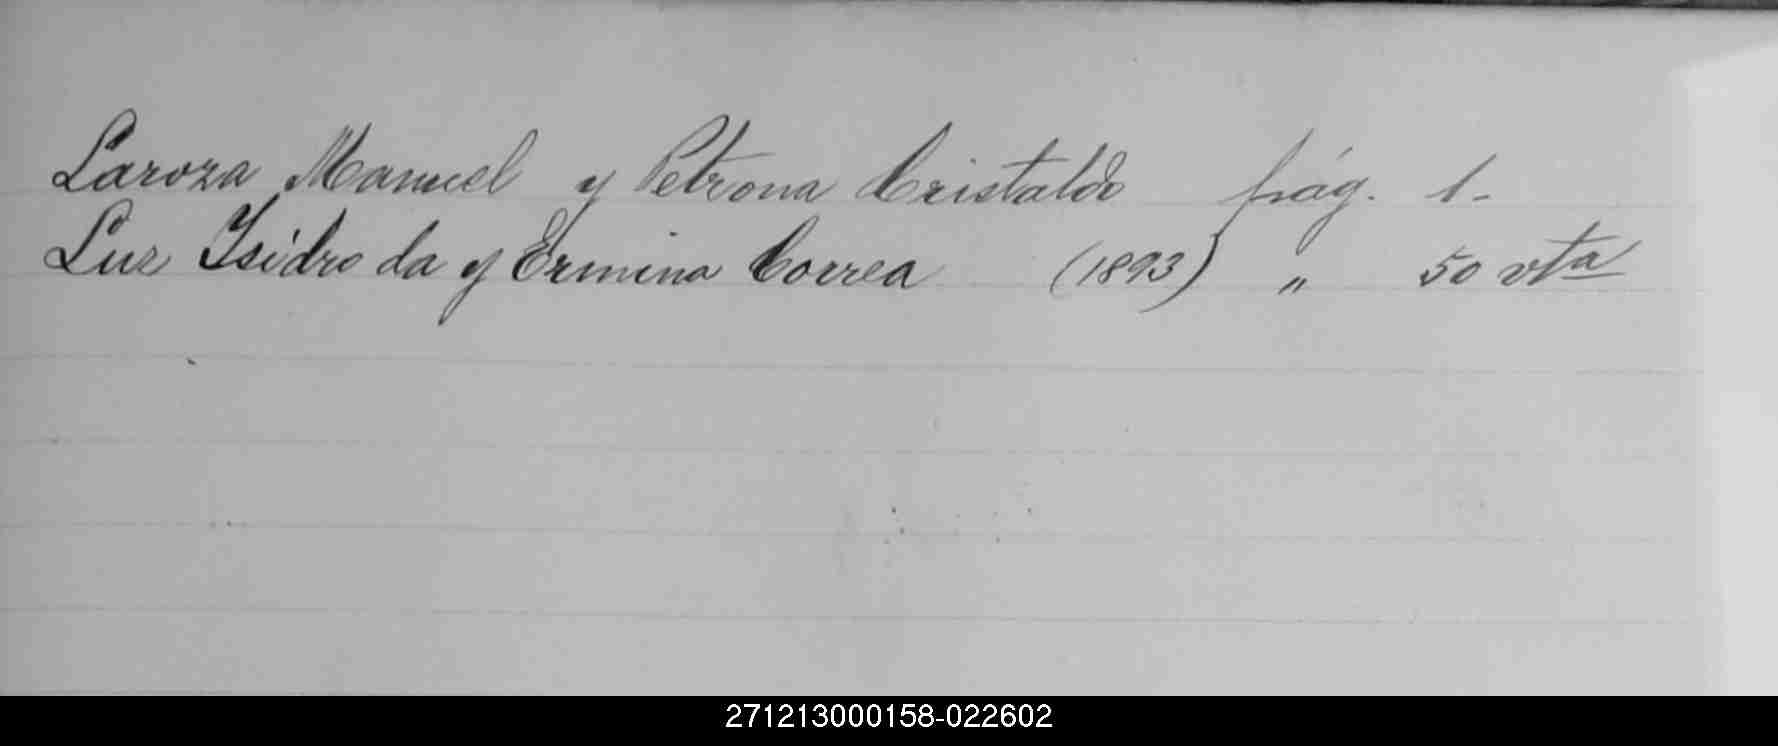 Laroza Manuel y Petrona Cristaldo pág. 1-
Luz Isidro da y Ermina Correa (1893) " 50 vta
271213000158-022602